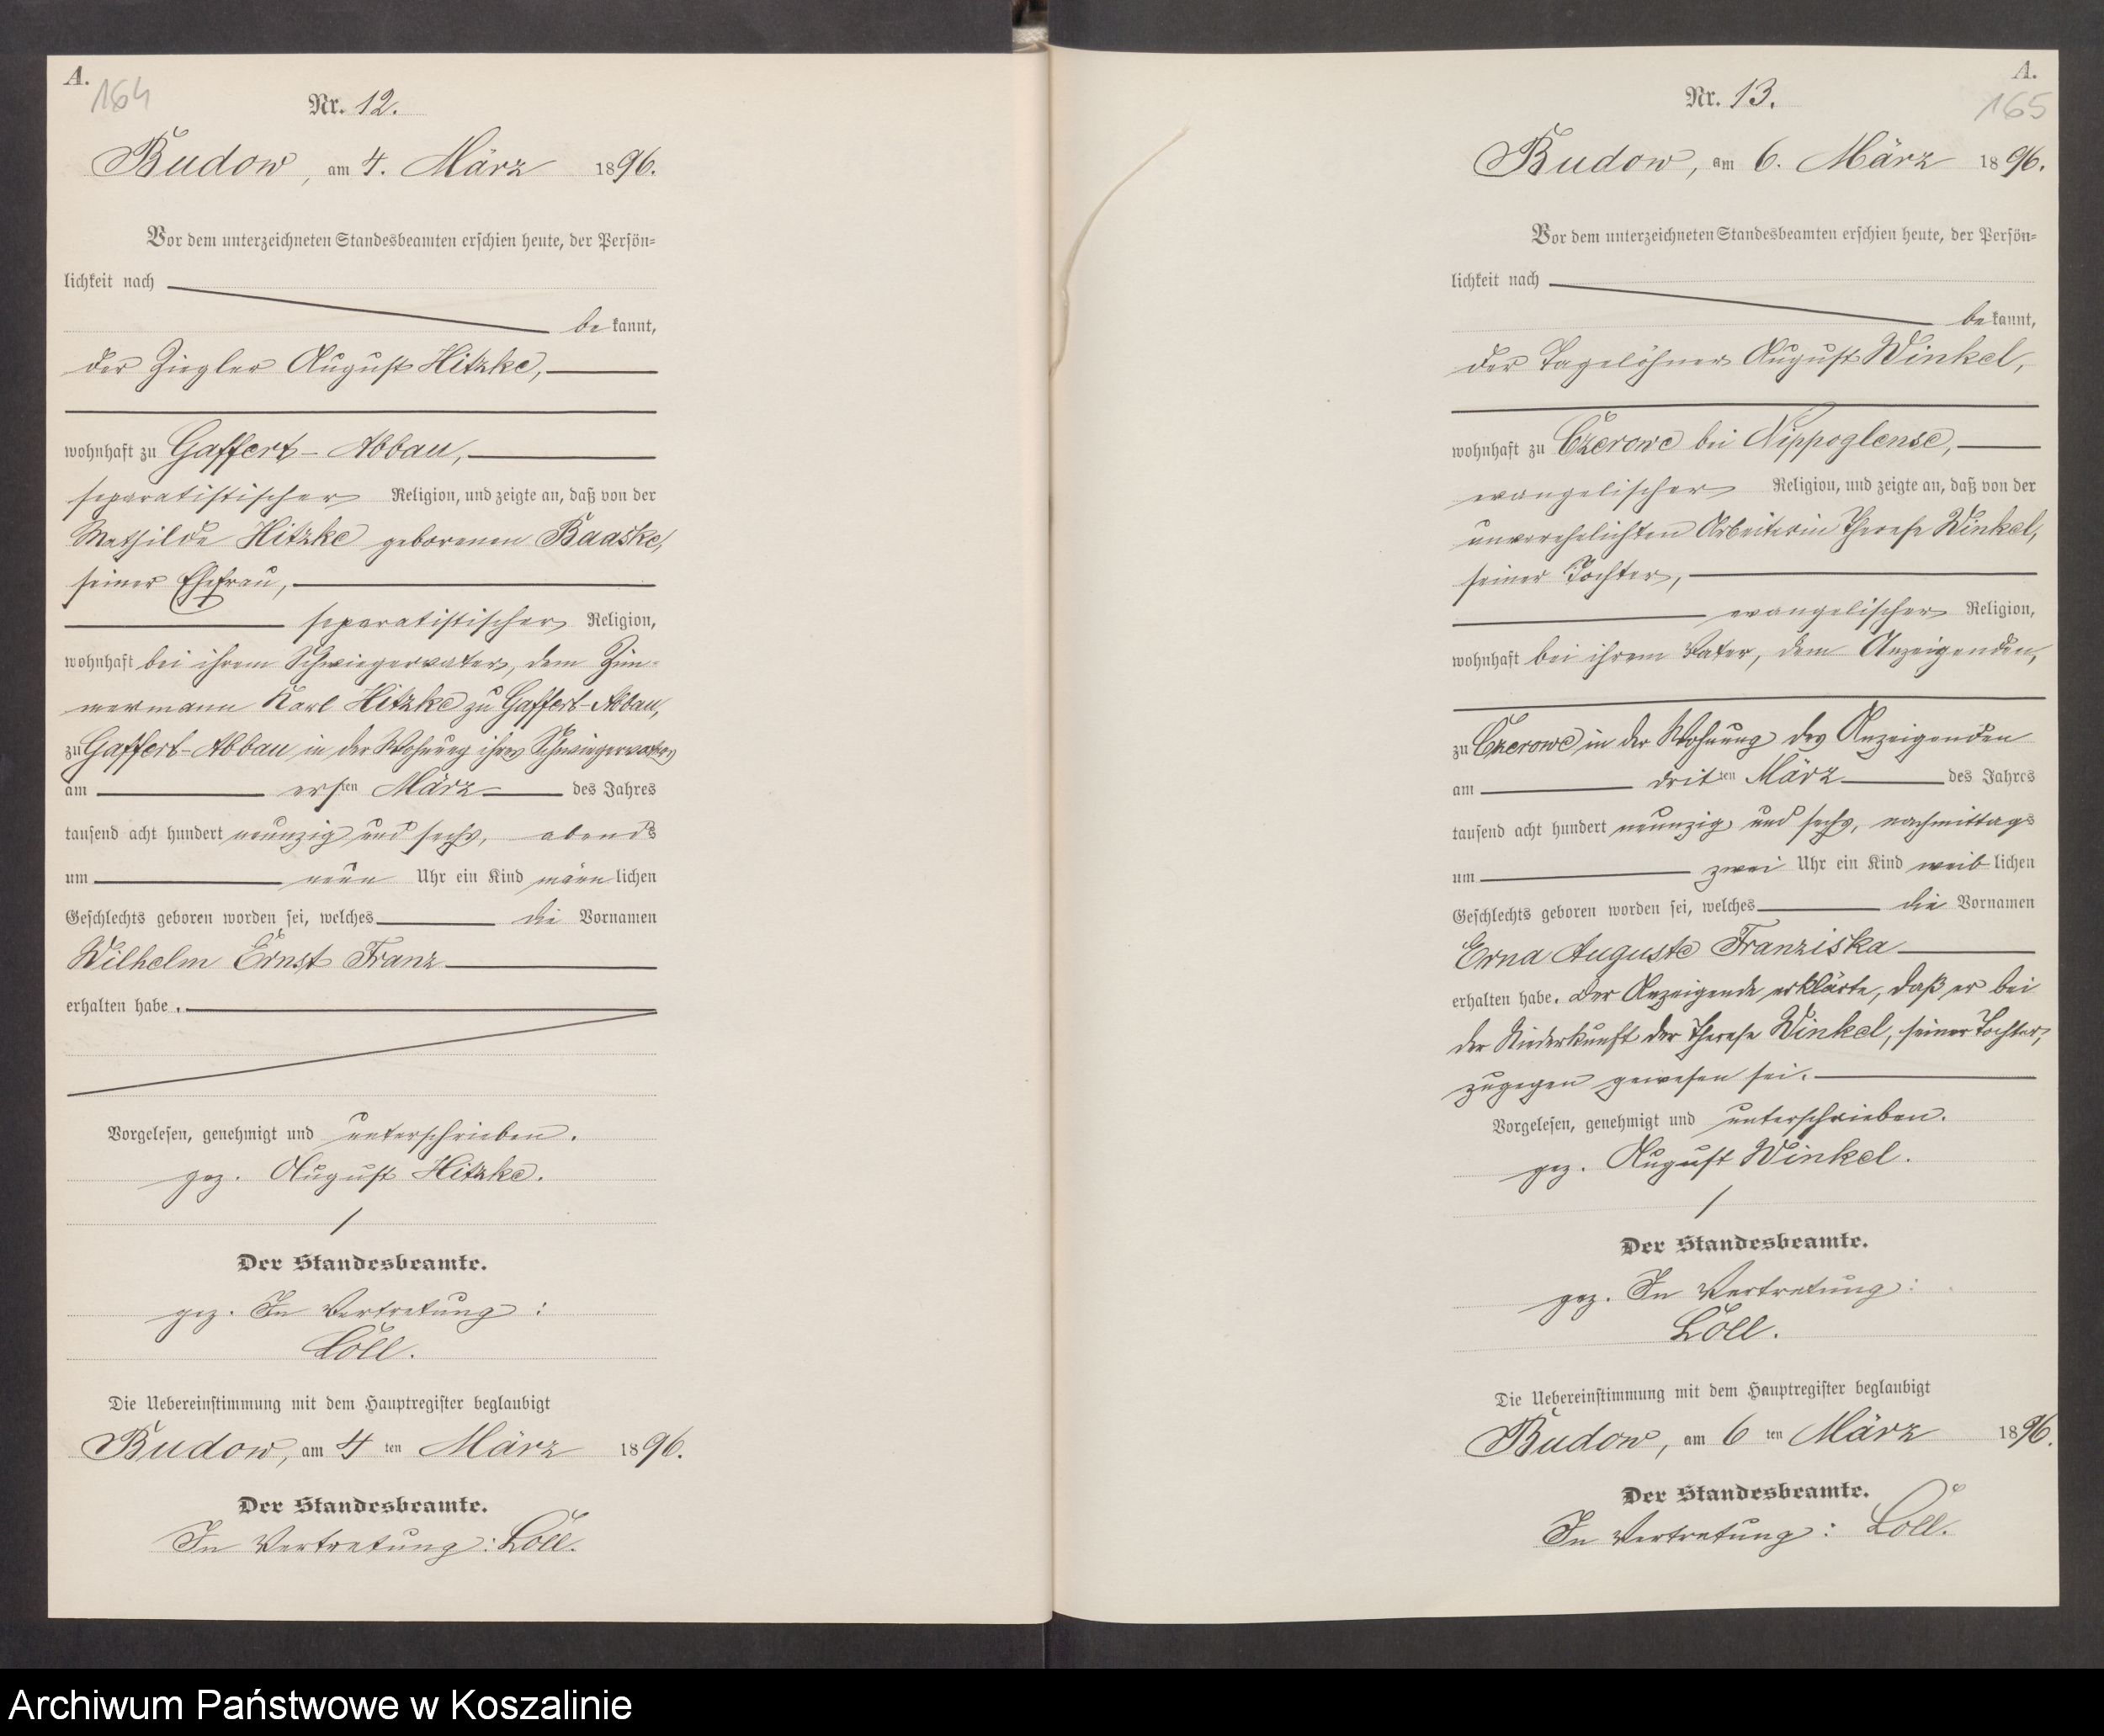 A.
164
Nr. 12.
Budow, am 4. März 1896.
Vor dem unterzeichneten Standesbeamten erschien heute, der Persön=
lichkeit nach
bekannt,
der Ziegler August Hitzke,
wohnhaft zu Gaffert-Abbau,
separatistischer Religion, und zeigte an, daß von der
Mathilde Hitzke geborenen Baaske,
seiner Ehefrau,
separatistischer Religion,
wohnhaft bei ihrem Schwiegervater, dem Zim-
mermann Karl Hitzke zu Gaffert-Abbau,
zu Gaffert-Abbau in der Wohnung ihres Schwiegervaters
am ersten März des Jahres
tausend acht hundert neunzig und sechs, abends
um neun Uhr ein Kind männlichen
Geschlechts geboren worden sei, welches die Vornamen
Wilhelm Ernst Franz
erhalten habe.
Vorgelesen, genehmigt und unterschrieben.
gez. August Hitzke.
Der Standesbeamte.
gez. In Vertretung:
Löll.
Die Uebereinstimmung mit dem Hauptregister beglaubigt
Budow, am 4ten März 1896.
Der Standesbeamte.
In Vertretung: Löll.
A.
165
Nr. 13.
Budow, am 6. März 1896.
Vor dem unterzeichneten Standesbeamten erschien heute, der Persön=
lichkeit nach
bekannt,
der Tagelöhner August Winkel,
wohnhaft zu Czerowe bei Nippoglense,
evangelischer Religion, und zeigte an, daß von der
unverehelichten Arbeiterin Therese Winkel,
seiner Tochter,
evangelischer Religion,
wohnhaft bei ihrem Vater, dem Anzeigenden,
zu Czerowe in der Wohnung des Anzeigenden
am dritten März des Jahres
tausend acht hundert neunzig und sechs, nachmittags
um zwei Uhr ein Kind weiblichen
Geschlechts geboren worden sei, welches die Vornamen
Erna Auguste Franziska
erhalten habe. Der Anzeigende erklärte, daß er bei
der Niederkunft der Therese Winkel, seiner Tochter,
zugegen gewesen sei.
Vorgelesen, genehmigt und unterschrieben.
gez. August Winkel.
Der Standesbeamte.
gez. In Vertretung:
Löll.
Die Uebereinstimmung mit dem Hauptregister beglaubigt
Budow, am 6ten März 1896.
Der Standesbeamte.
In Vertretung: Löll.
Archiwum Państwowe w Koszalinie